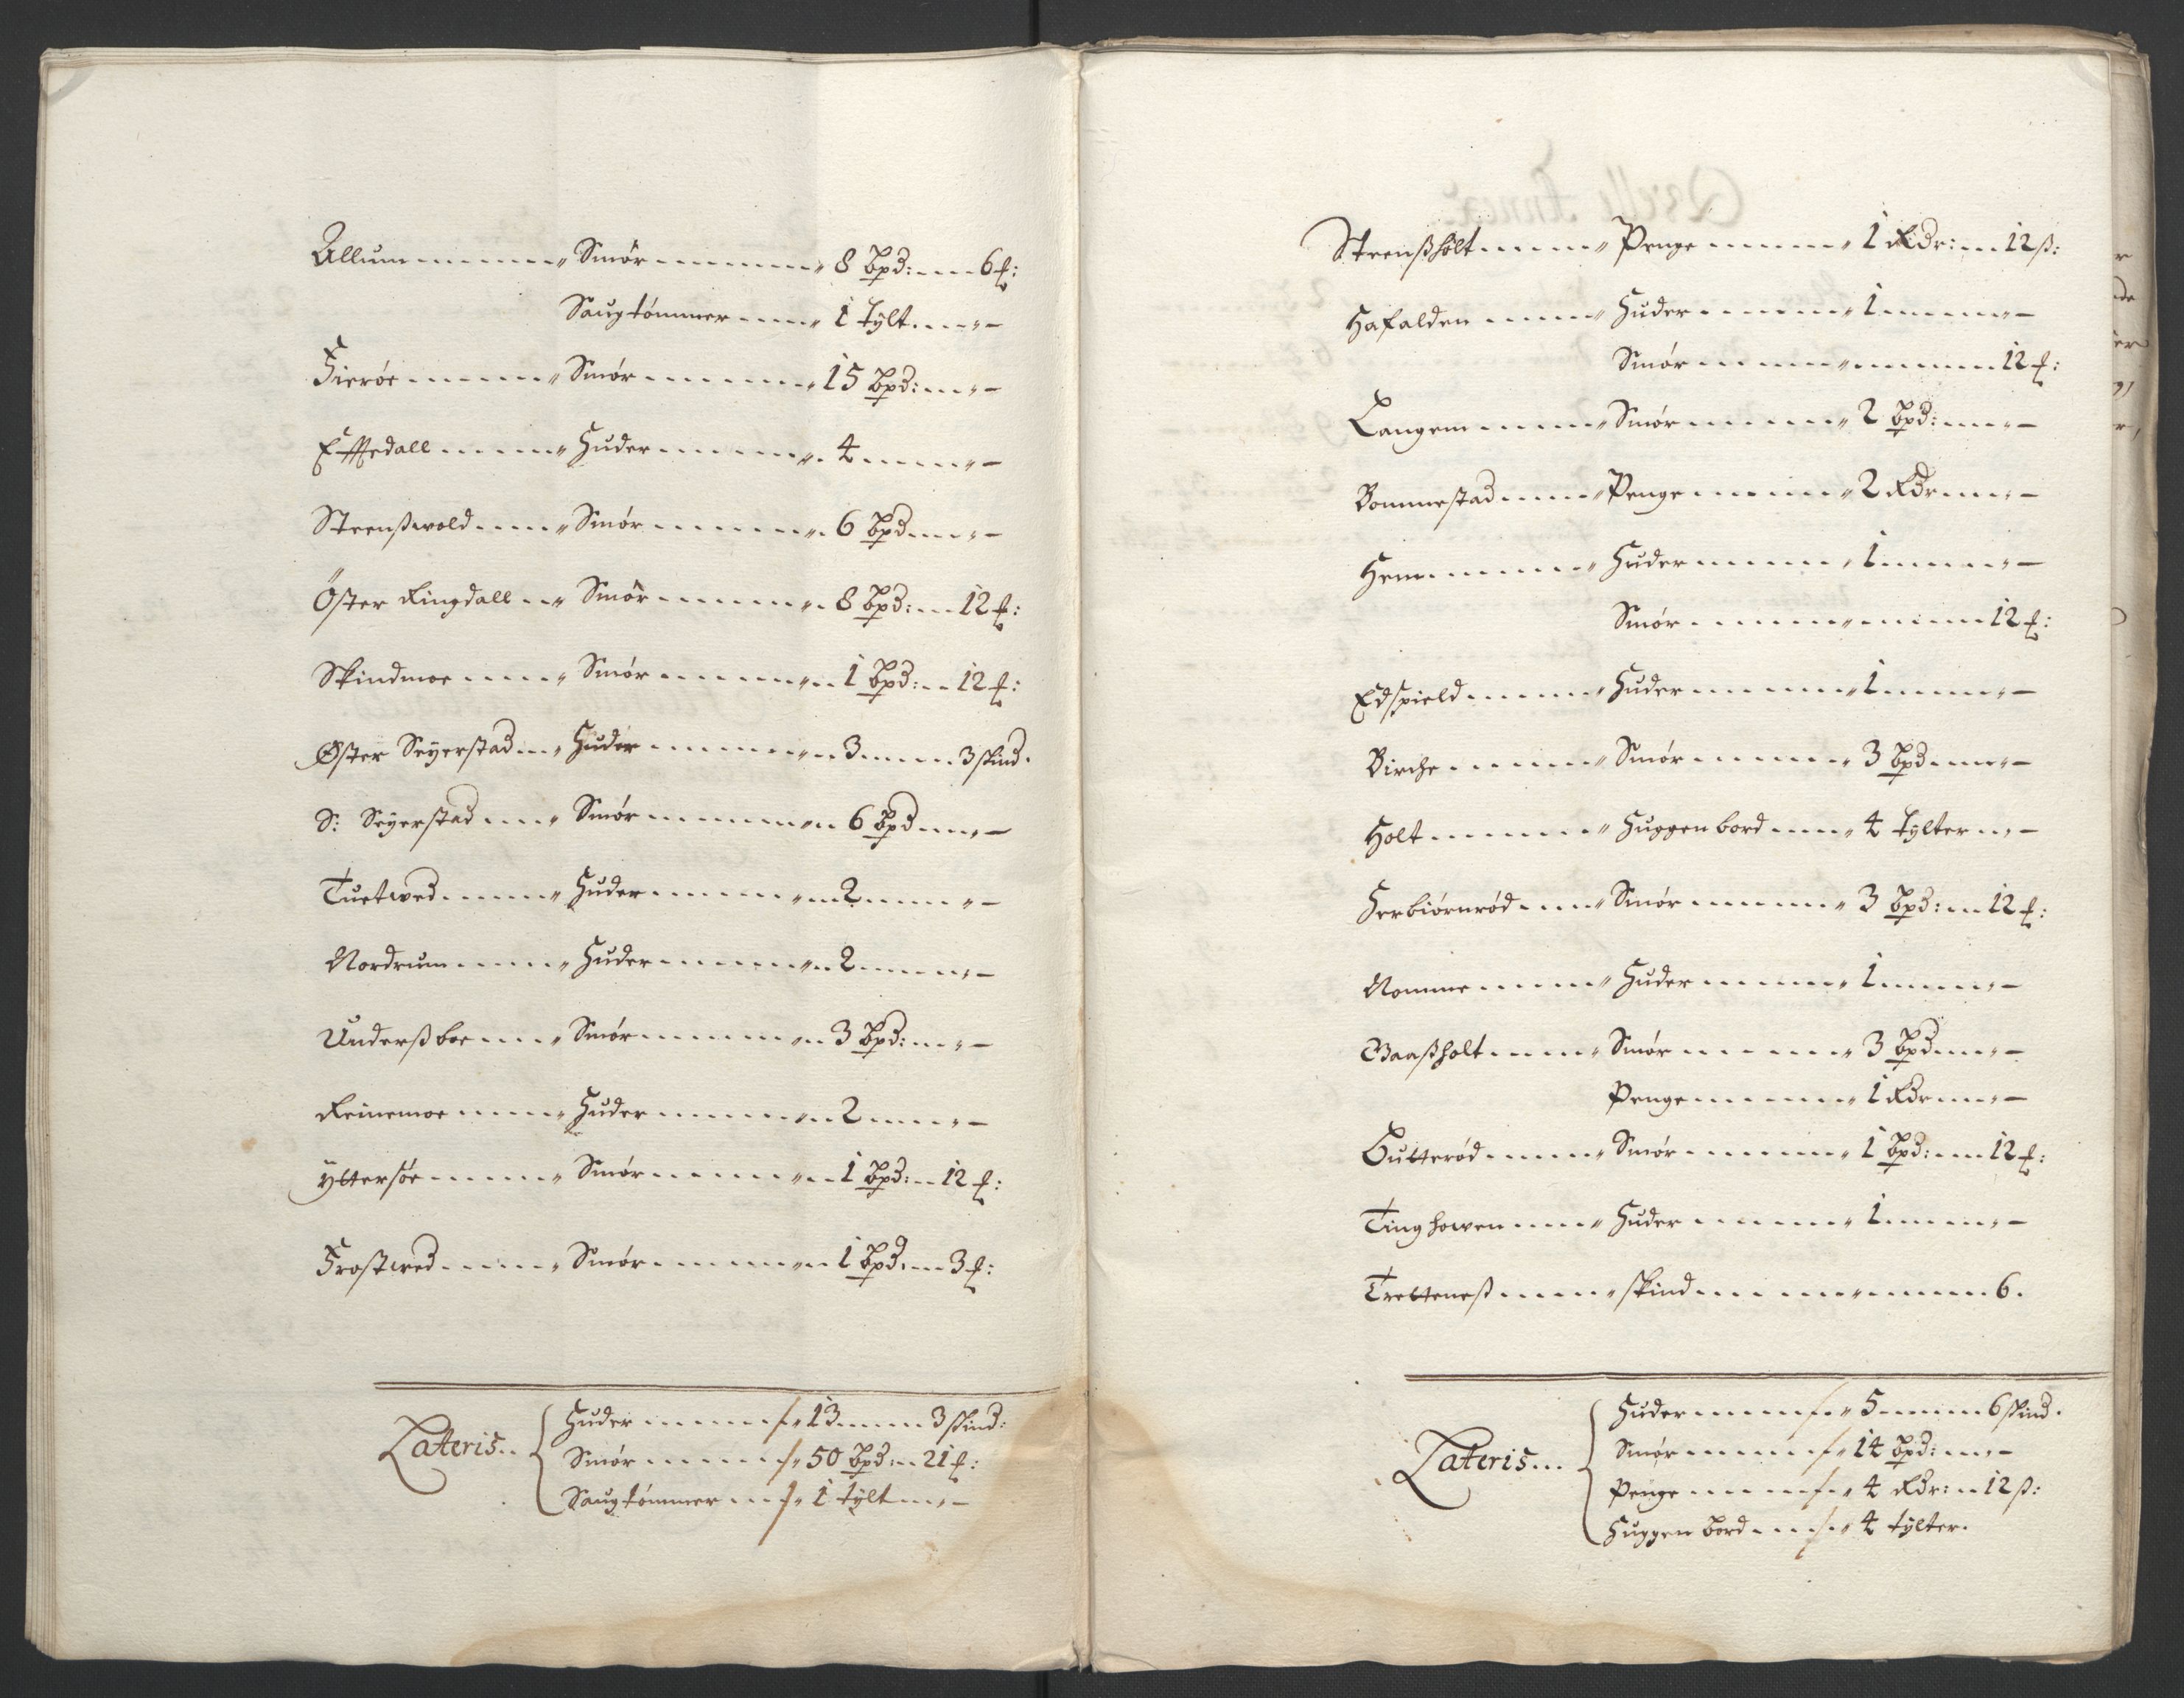 Allum . . . . Smør . . . . 8 bpd: . . . 6 ℔:
Saugtømmer . . . . 1 tylt . . . –
Fierøe . . . . Smør . . . . 15 bpd: . . . –
Effedall . . . . Huder . . . . 4 . . . –
Steenßwold . . . . Smør . . . . 6 bpd . . . –
Öster Ringdall . . Smør . . . . 8 bpd: . . . 12 ℔:
Skindmoe . . . . Smør . . . . 1 bpd: . . 12 ℔:
Øster Seÿerstad . . Huder . . . . 3 . . . 3 skind.
S: Seÿerstad . . . Smør . . . . 6 bpd . . . –
Tuetwed . . . . Huder . . . . 2 . . . –
Nordrum . . . . Huder . . . . 2 . . . –
Underßboe . . . Smør . . . . 3 bpd: . . . –
Reinemoe . . . . Huder . . . . 2 . . . –
Yttersøe . . . . Smør . . . . 1 bpd: . . 12 ℔:
Frostwed . . . . Smør . . . . 1 bpd . . . 3 ℔:
Lateris . .
Huder . . . . 13 . . . 3 skind:
Smør . . . . 50 bpd: . . 21 ℔:
Saugtømmer . . . 1 tylt . . . –
Steenßholt . . . . Penge . . . . 1 Rdr: . . 12 ß:
Hafalden . . . . Huder . . . . 1 . . . –
Smør . . . . 12 ℔:
Langem . . . . Smør . . . . 2 bpd: . . . –
Bommestad . . . Penge . . . . 2 Rdr . . . –
Hem . . . . Huder . . . . 1 . . . –
Smør . . . . 12 ℔:
Edspield . . . . Huder . . . . 1 . . . –
Birche . . . . Smør . . . . 3 bpd . . . –
Holt . . . . Huggenbord . . . 4 tylter . . –
Herbiørnrød . . . Smør . . . . 3 bpd: . . 12 ℔:
Nomme . . . . Huder . . . . 1 . . . –
Baaßholt . . . . Smør . . . . 3 bpd . . . –
Penge . . . . 1 Rdr . . . –
Gutterød . . . . Smør . . . . 1 bpd: . . . 12 ℔:
Tinghowen . . . . Huder . . . . 1 . . . –
Tretteneß . . . . skind . . . . 6.
Lateris . . .
Huder . . . . 5 . . . 6 skind.
Smør . . . . 14 bpd: . . . –
Penge . . . . 4 Rdr: . . 12 ß:
Huggen bord . . . 4 tylter.